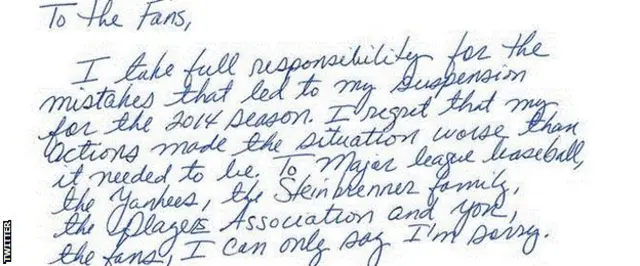 To the Fans,
I take full responsibility for the
mistakes that led to my suspension
for the 2014 season. I regret that my
actions made the situation worse than
it needed to be. To Major league baseball,
the Yankees, the Steinbrenner family,
the Players Association and you,
the fans, I can only say I'm sorry.
TWITTER